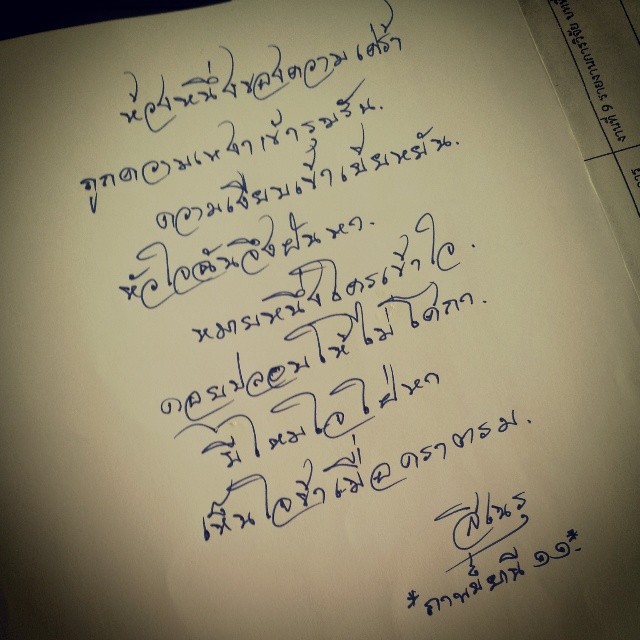 ห้วงหนึ่งของความเศร้า
ถูกความเหงาเข้ารุมรัน.
ความเงียบเข้าเย้ยหยัน.
หัวใจฉันจึงฝันหา.
หมายหนึ่งใครเข้าใจ.
คอยปลอบให้ไม่
มีไหมใจใฝ่หา
เห็นใจข้าเมื่อตรอมตรม.
สิเนรุ
*กาพย์ยานี ๑๑*